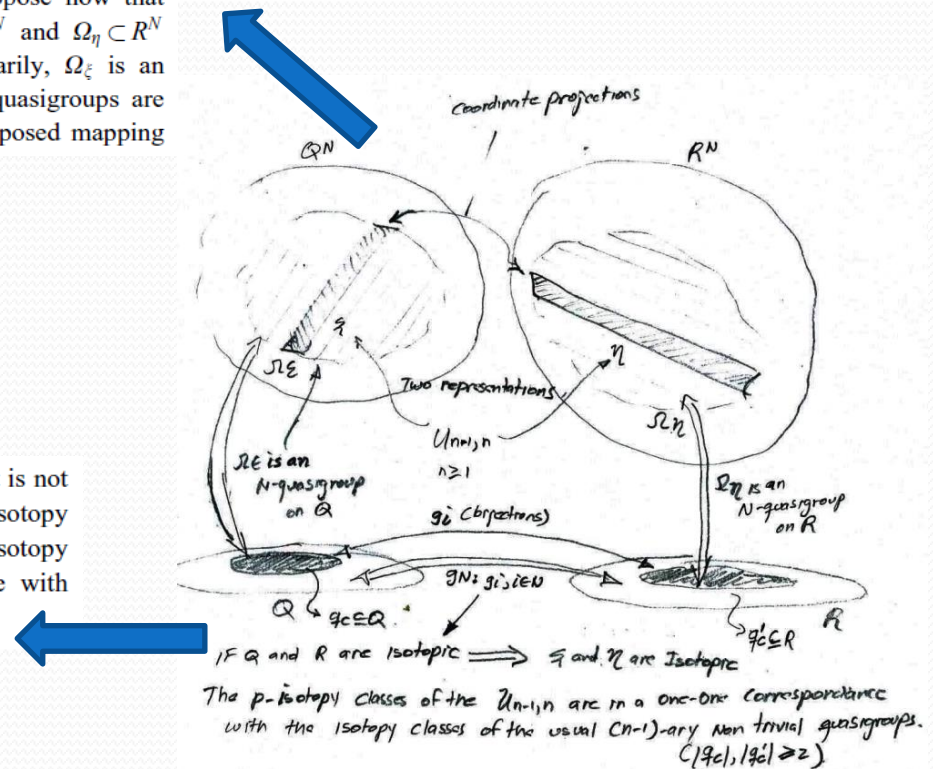 pose now that
N and Ω_η ⊂ R^N
arily, Ω_ξ is an
quasigroups are
posed mapping
coordinate projections
Q^N
R^N
ξ
η
Ωξ
Two representations
Ωη
U_{n-1,n}
n≥1
Ωξ is an
N-quasigroup
on Q
Ωη is an
N-quasigroup
on R
is not
sotopy
sotopy
e with
gi (bijections)
gN: gi, i∈N
Q
qc⊆Q.
q'c⊆R
R
IF Q and R are Isotopic ⟹ ξ and η are Isotopic
The p-isotopy classes of the U_{n-1,n} are in a one-one correspondance
with the isotopy classes of the usual (n-1)-ary Non trivial quasigroups.
(|qc|, |q'c| ≥2)